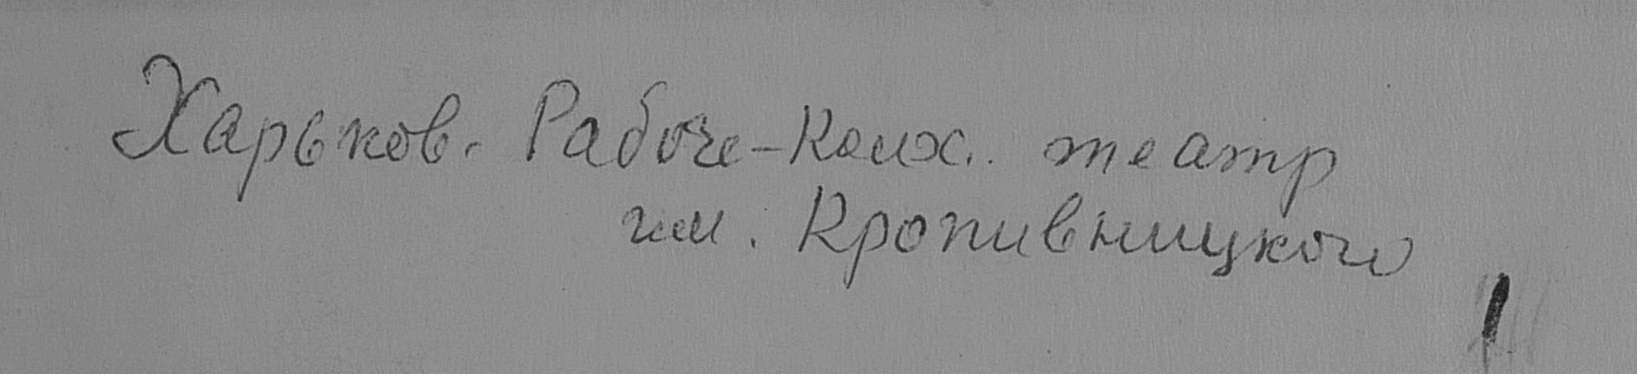 Харьков. Рабоче-Колх. театр
им. Кропивницкого